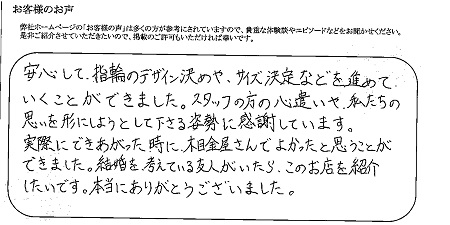 お客様のお声
弊社ホームページの「お客様の声」は多くの方が参考にされていますので、貴重な体験談やエピソードなどをお聞かせください。
是非ご紹介させていただきたいので、掲載のご許可もいただければ幸いです。
安心して、指輪のデザイン決めや、サイズ決定などを進めて
いくことができました。スタッフの方の心遣いや、私たちの
思いを形にしようとして下さる姿勢に感謝しています。
実際にできあがった時に、杢目金屋さんでよかったと思うことが
できました。結婚を考えている友人がいたら、このお店を紹介
したいです。本当にありがとうございました。